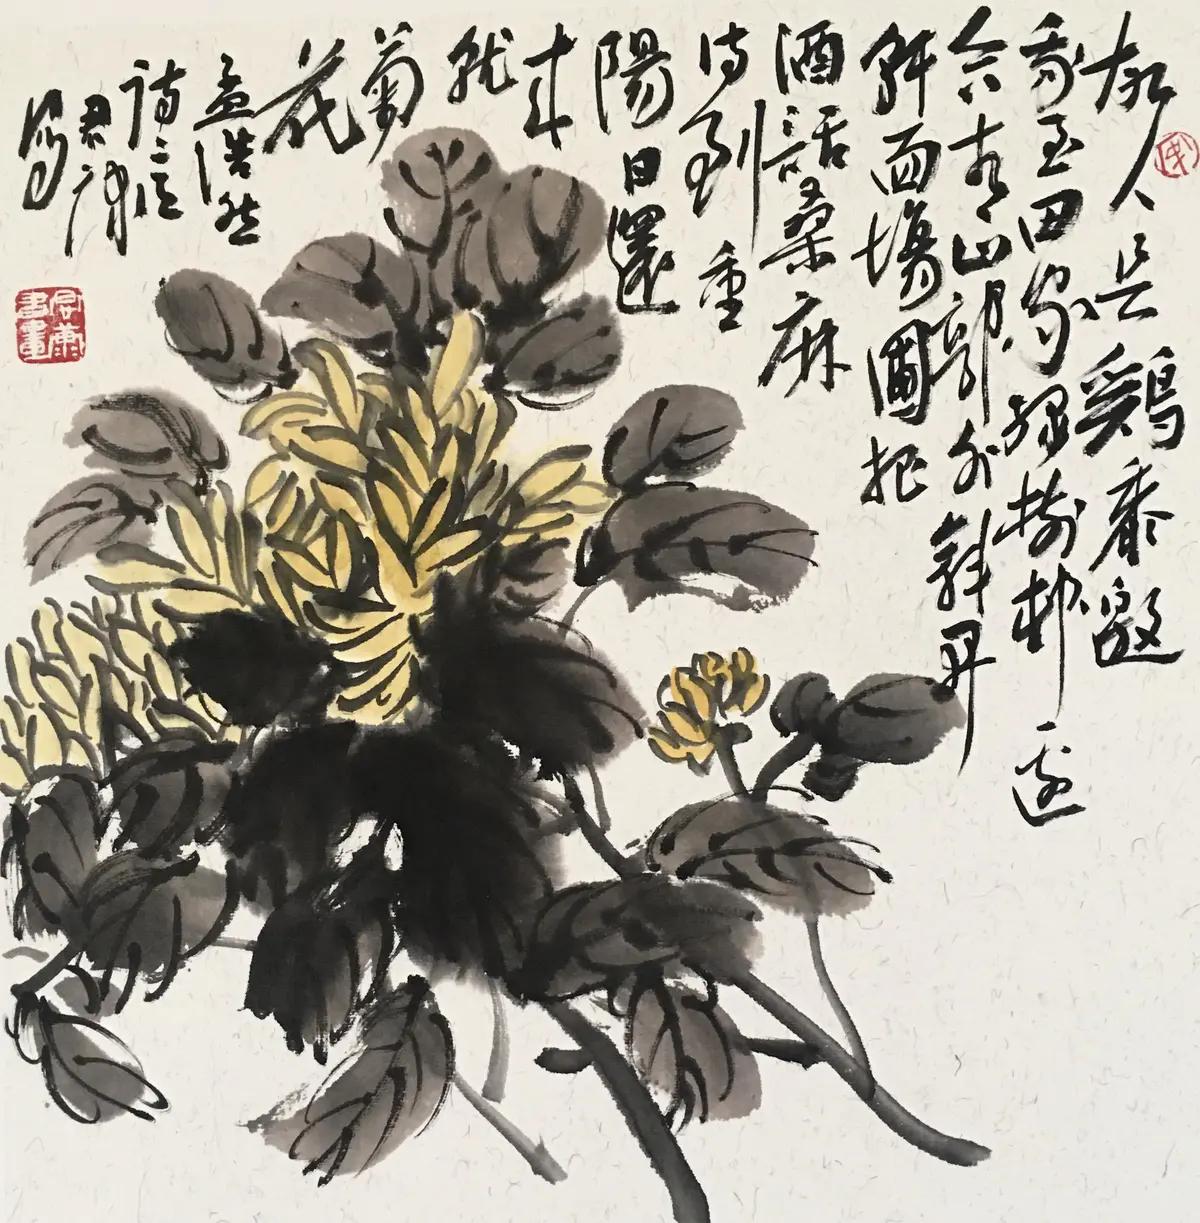 故人具鷄黍邀
我至田家綠樹村边
合青山郭外斜开
軒面場圃把
酒話桑麻
待到重
陽日還
来
就
菊
花
孟浩然
詩意
君康
写
君康書畫